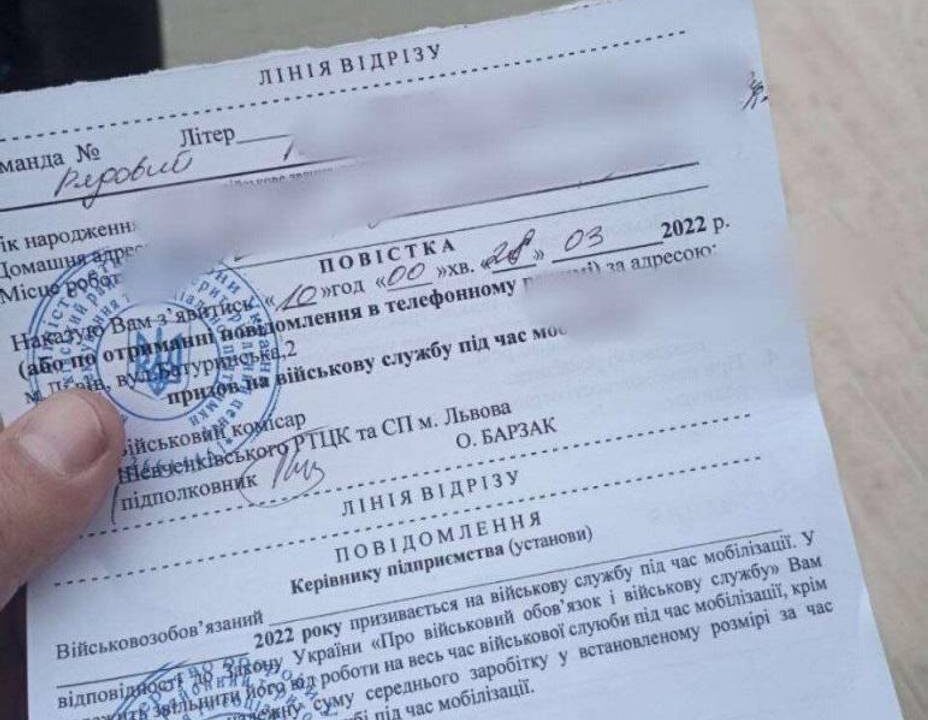 ЛІНІЯ ВІДРІЗУ
манда № Літер
Рядовий
ік народженн
Домашня адрес
Місце робот
ПОВІСТКА
Наказую Вам з’явитись «10»год «00»хв. «28» 03 2022 р.
(або по отриманні повідомлення в телефонному за адресою:
м.Львів, вул.Батуринська,2
призов на військову службу під час моб
ійськовий комісар
Шевченківського РТЦК та СП м. Львова
підполковник О. БАРЗАК
ЛІНІЯ ВІДРІЗУ
ПОВІДОМЛЕННЯ
Керівнику підприємства (установи)
Військовозобов’язаний
2022 року призивається на військову службу під час мобілізації. У
відповідності до Закону України «Про військовий обов’язок і військову службу» Вам
звільнити його від роботи на весь час військової слуюби під час мобілізації, крім
належну суму середнього заробітку у встановленому розмірі за час
під час мобілізації.